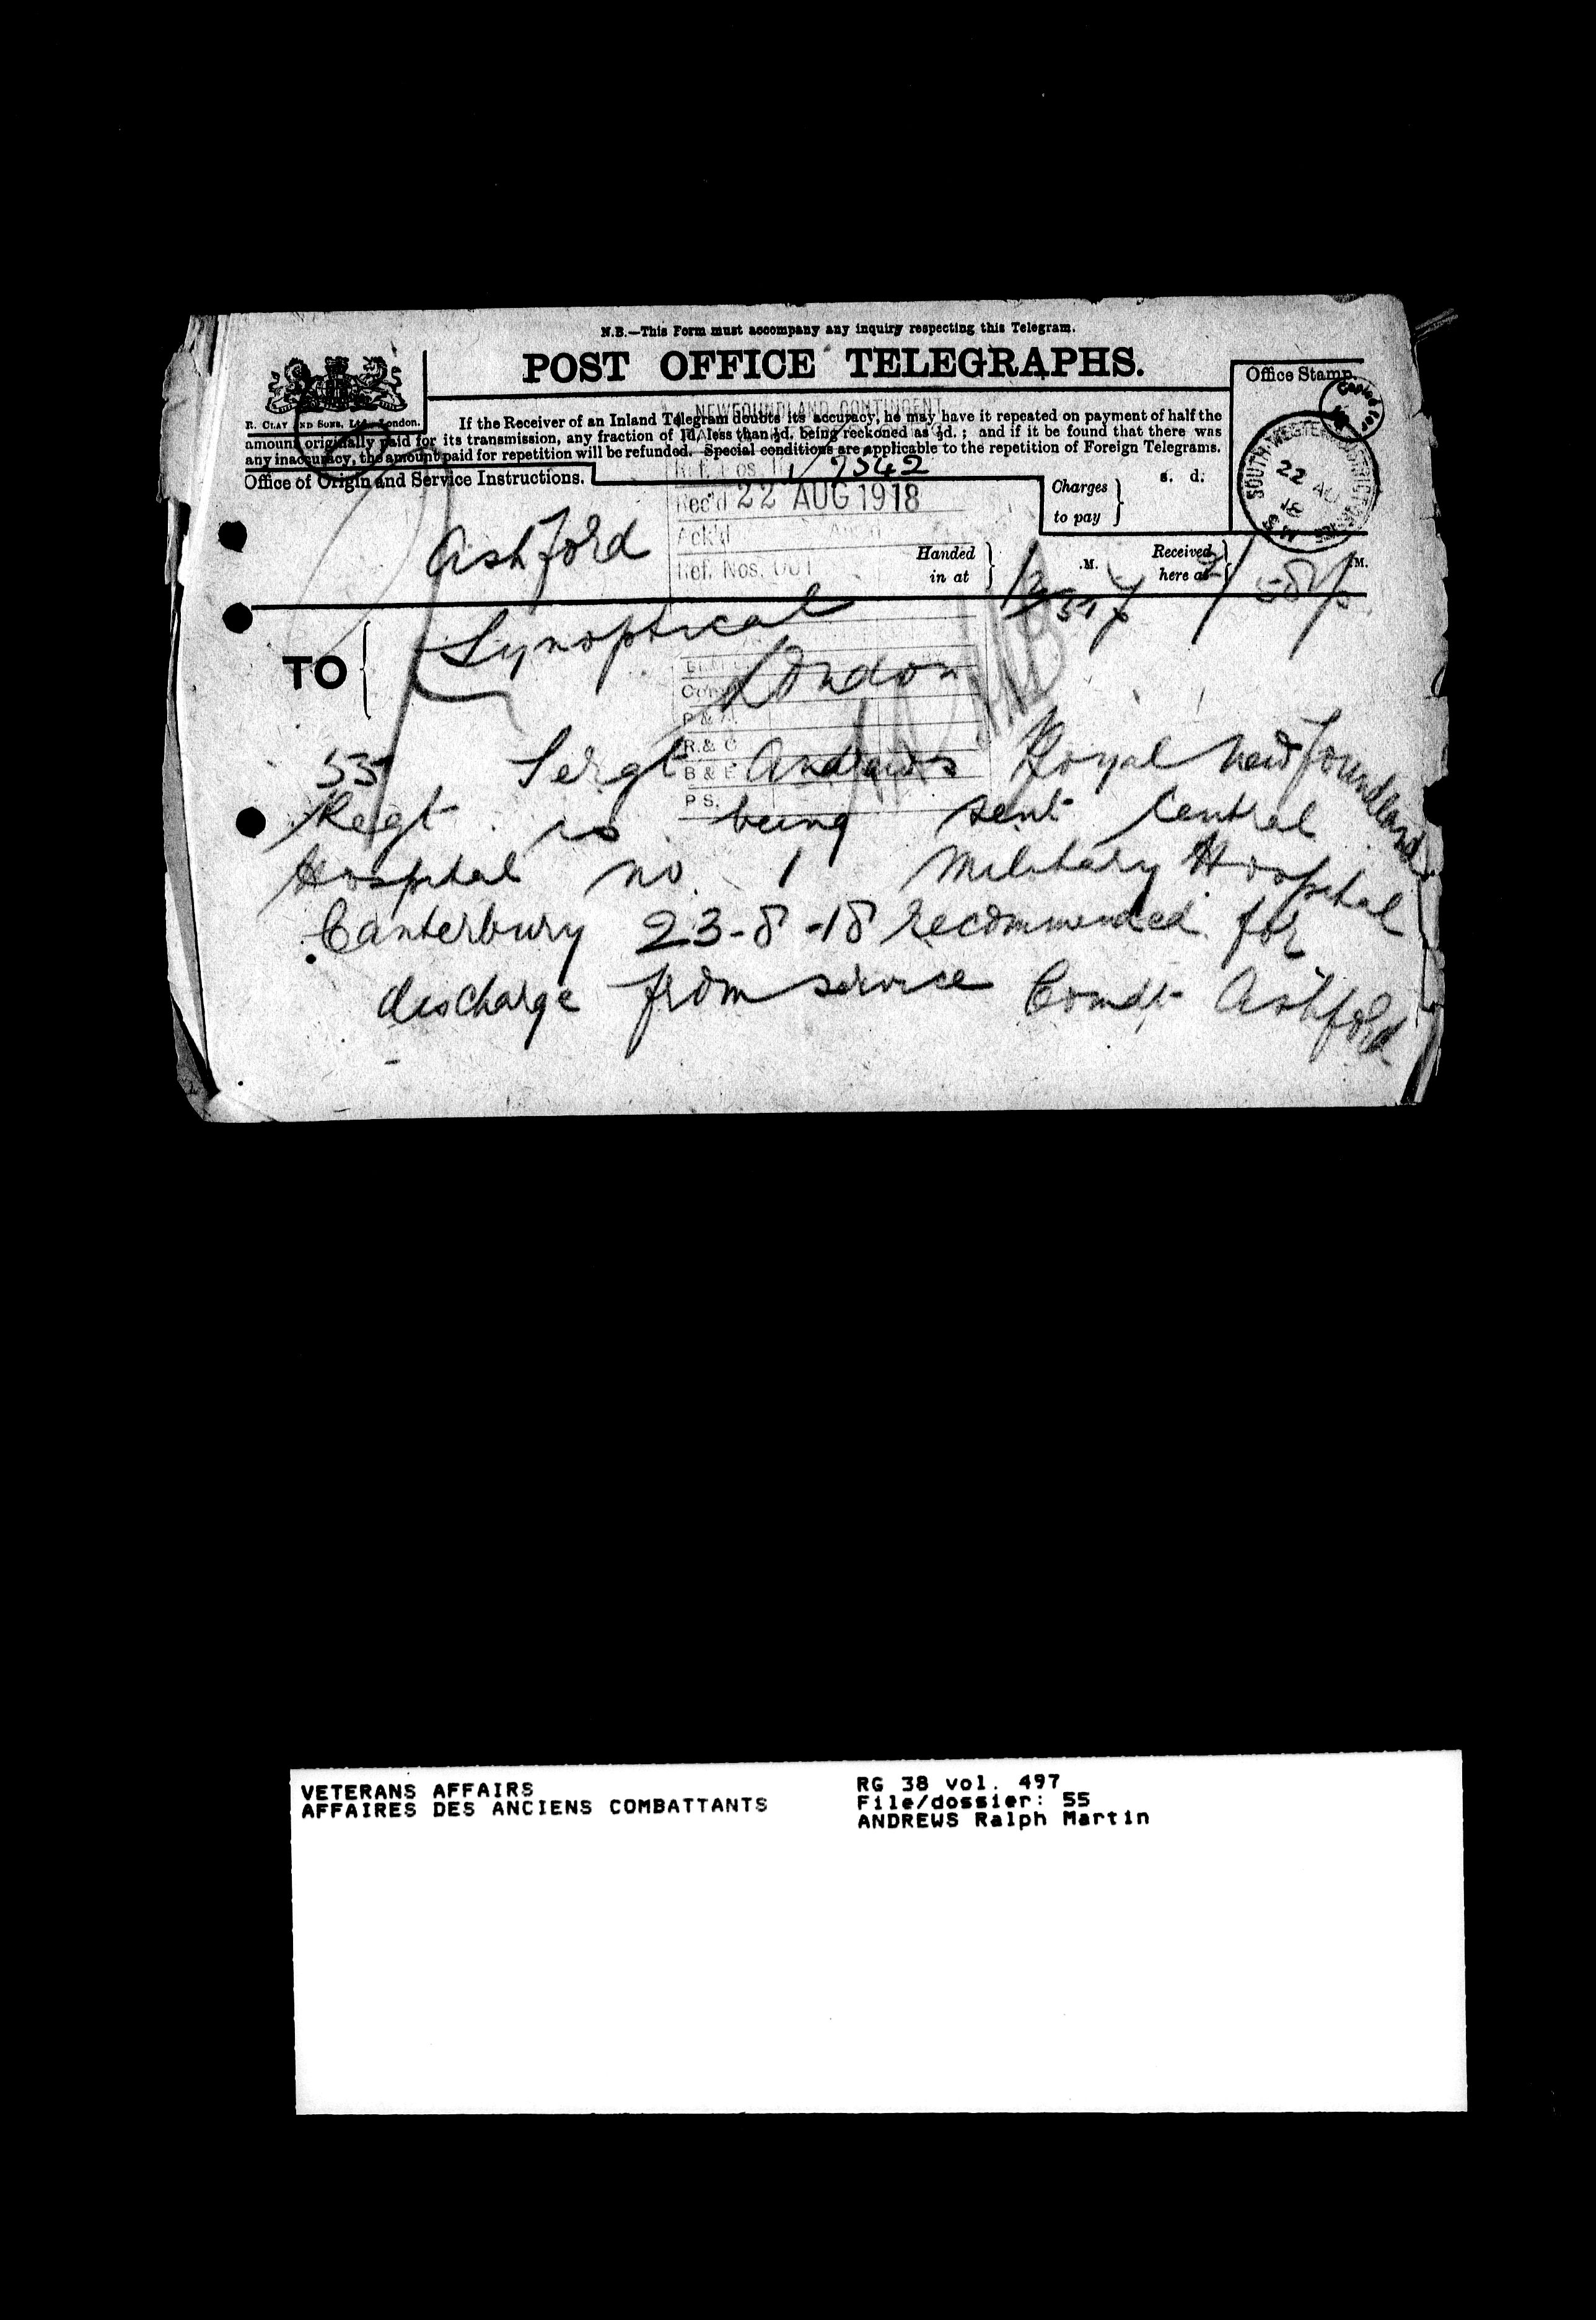 N.B.—This Form must accompany any inquiry respecting this Telegram.
POST OFFICE TELEGRAPHS.
Office Stamp.
R. CLAY AND SONS, Ltd., London.
If the Receiver of an Inland Telegram doubts its accuracy, he may have it repeated on payment of half the
amount originally paid for its transmission, any fraction of 1d. less than ½d. being reckoned as ½d.; and if it be found that there was
any inaccuracy, the amount paid for repetition will be refunded. Special conditions are applicable to the repetition of Foreign Telegrams.
NEWFOUNDLAND CONTINGENT
Office of Origin and Service Instructions.
7342
Rec'd 22 AUG 1918
Ack'd
Ref. Nos.
Charges
to pay
s. d.
SOUTH WESTERN DISTRICT
22 AU
18
S.W.
Ashford
Handed
in at
.M.
Received
here at
M.
TO
Synoptical
London
R. & C
B & F
P S.
55 Sergt Andrews Royal Newfoundland
Regt is being sent Central
Hospital no 1 Military Hospital
Canterbury 23-8-18 recommended for
discharge from service Comdt Ashford
VETERANS AFFAIRS
AFFAIRES DES ANCIENS COMBATTANTS
RG 38 vol. 497
File/dossier: 55
ANDREWS Ralph Martin